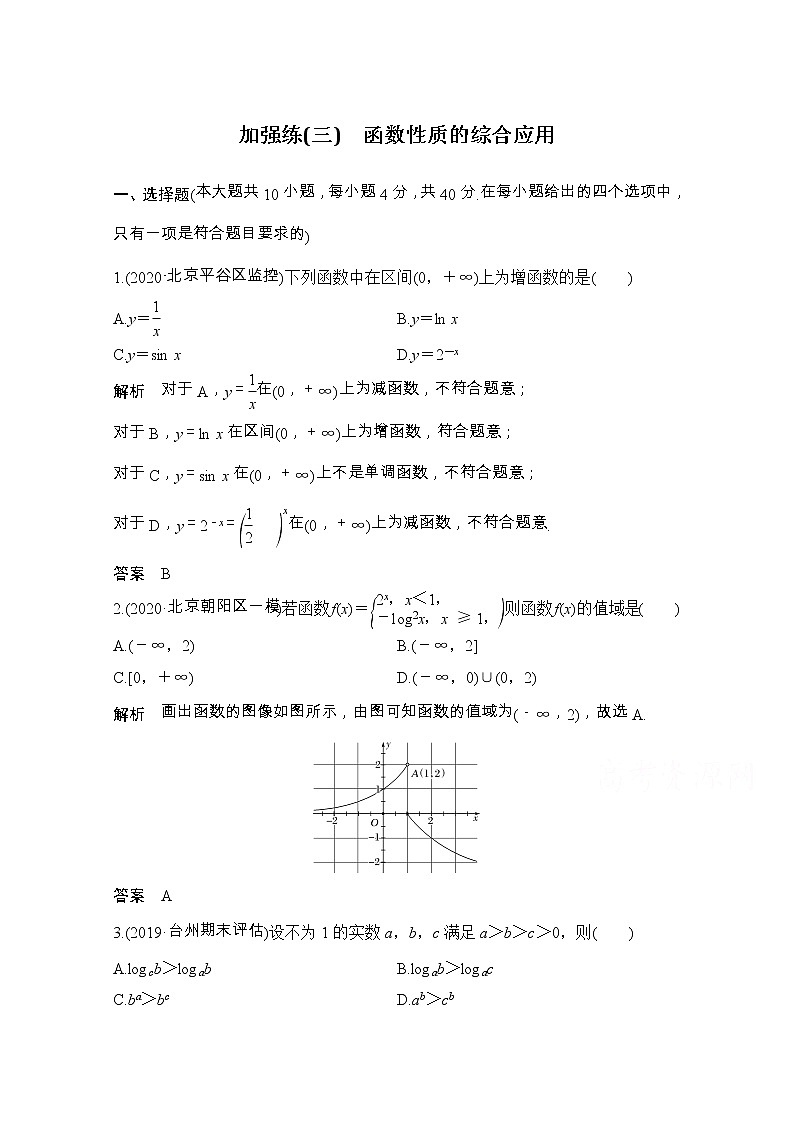 加强练(三)　函数性质的综合应用
一、选择题(本大题共10小题，每小题4分，共40分.在每小题给出的四个选项中，
只有一项是符合题目要求的)
1.(2020·北京平谷区监控)下列函数中在区间(0，＋∞)上为增函数的是(　　)
A.y＝1/x　　B.y＝ln x
C.y＝sin x　　D.y＝2^{－x}
解析　对于A，y＝1/x在(0，＋∞)上为减函数，不符合题意；
对于B，y＝ln x在区间(0，＋∞)上为增函数，符合题意；
对于C，y＝sin x在(0，＋∞)上不是单调函数，不符合题意；
对于D，y＝2^{－x}＝(1/2)^x在(0，＋∞)上为减函数，不符合题意.
答案　B
2.(2020·北京朝阳区一模)若函数f(x)＝{2^x，x＜1，－log^2x，x≥1，)则函数f(x)的值域是(　　)
A.(－∞，2)　　B.(－∞，2]
C.[0，＋∞)　　D.(－∞，0)∪(0，2)
解析　画出函数的图像如图所示，由图可知函数的值域为(－∞，2)，故选A.
y
2
A(1,2)
1
−2 O 2 x
−1
−2
答案　A
3.(2019·台州期末评估)设不为1的实数a，b，c满足a＞b＞c＞0，则(　　)
A.log_c b＞log_a b　　B.log_a b＞log_a c
C.b^a＞b^c　　D.a^b＞c^b